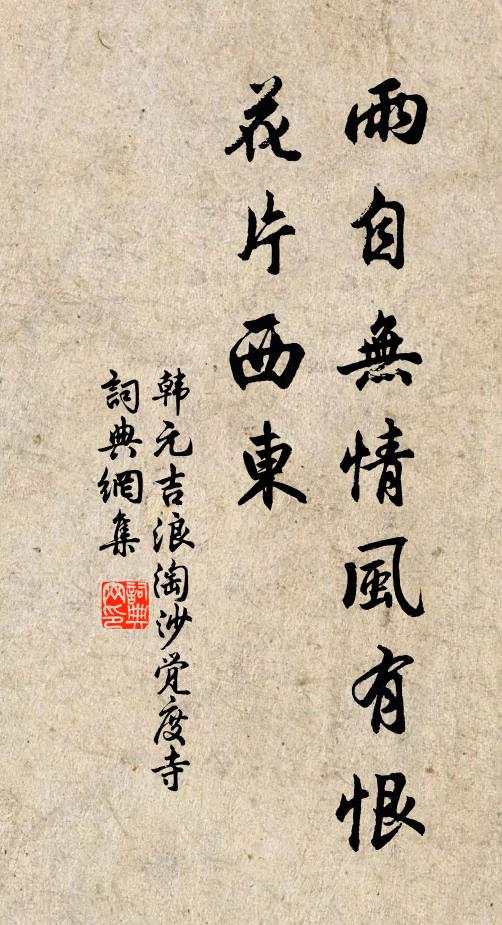 雨自無情風有恨
花片西東
韩元吉浪淘沙觉度寺
詞典網集
詞典
网印